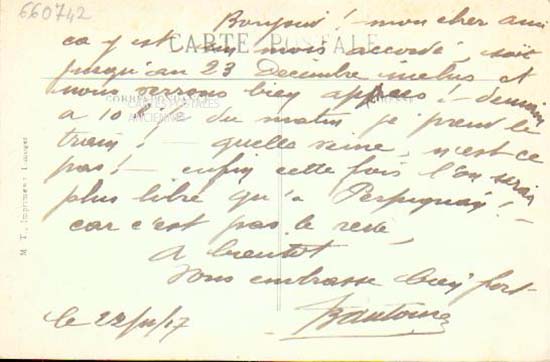 660742
Bonjour! mon cher ami
CARTE POSTALE
ça y est un mois accordé, soit
jusqu'au 23 Décembre inclus et
nous verrons bien après! - demain
CORRESPONDANCE
CARTES POSTALES
ANCIENNES
à 10 h du matin je prend le
train! - quelle veine, n'est ce
pas! - enfin cette fois l'on serai
plus libre qu'à Perpignan! -
car c'est pas le reste,
A bientôt
Vous embrasse bien fort -
le 22/11/17
M. T., Imprimeur, Limoges